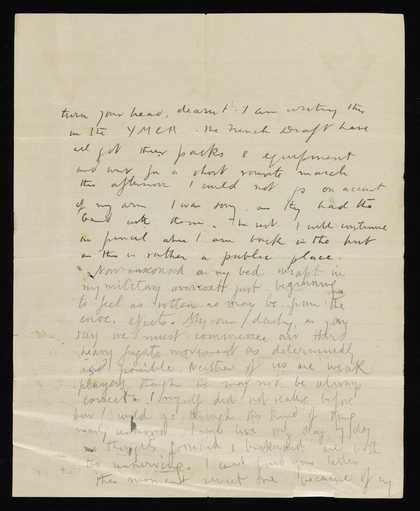 turn your head, dearest. I am writing this
in the YMCA. The French Draft have
all got their packs & equipment
and was for a short route march
this afternoon I could not go on account
of my arm I was sorry, as they had the
band with them. I will continue
in pencil when I am back in the hut
as this is rather a public place.
Now ensconced on my bed wrapt in
my military overcoat just beginning
to feel as rotten as may be from the
inoc. effects. My own, as you
say we must commence our
heavy movement as determinedly
as possible. Neither of us are weak
players though we may not be always
correct. I myself did not realise before
how I could go through this kind of thing
nearly. I only live day by day
as thoughts forward & backward are both
too unnerving. I can't find your letter
this moment because of my